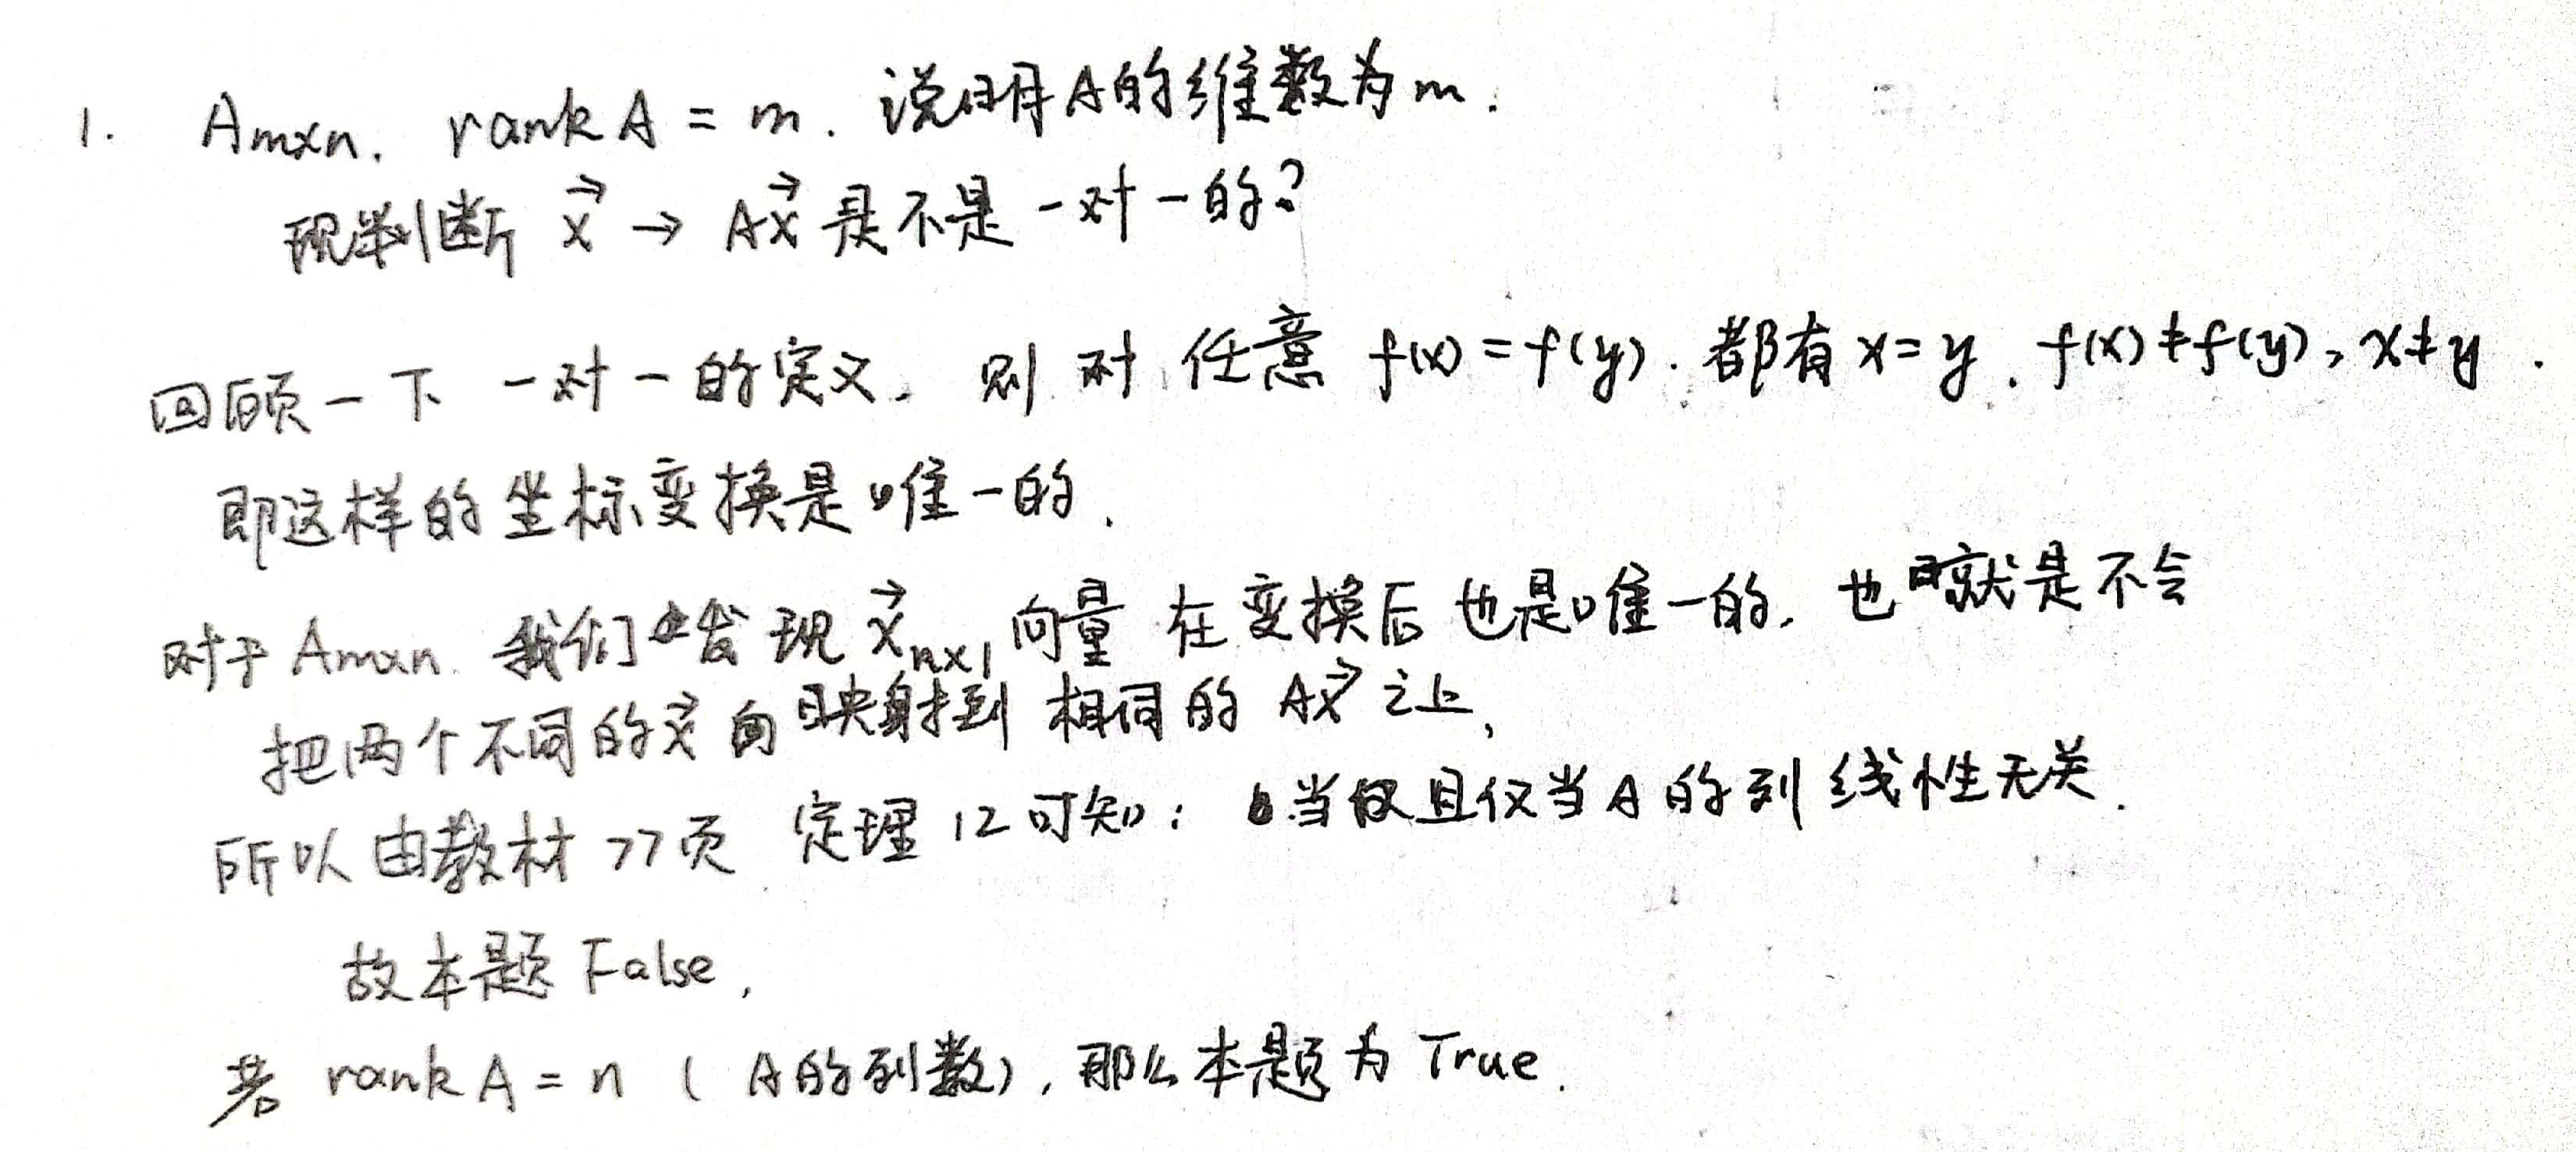 1. Amxn. rank A = m. 说明A的维数为m.
现判断 x⃗ → Ax⃗ 是不是一对一的?
回顾一下 一对一的定义. 则 对 任意 f(x) = f(y). 都有 x = y. f(x) ≠ f(y), x ≠ y.
即这样的坐标变换是唯一的.
对于 Amxn. 我们发现 x⃗nx1 向量 在变换后也是唯一的. 也就是不会
把两个不同的x⃗ 映射到 相同的 Ax⃗ 之上.
所以 由教材 77页 定理 12 可知: 当且仅当 A 的列线性无关.
故本题 False.
若 rank A = n ( A的列数), 那么本题为 True.